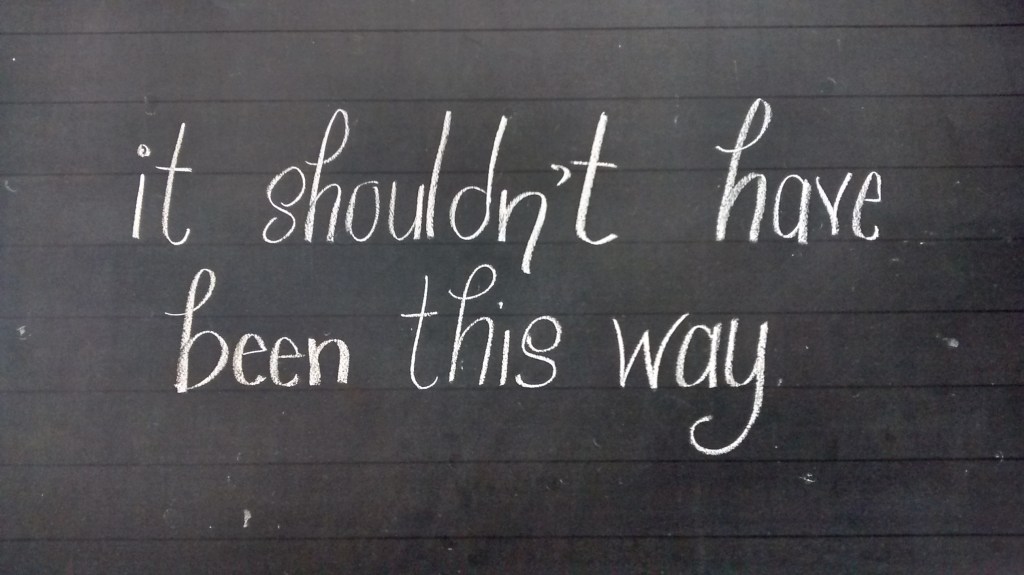 it shouldn't have
been this way